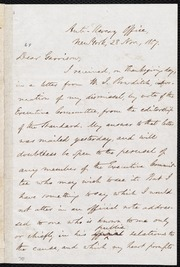 Anti-Slavery Office,
New York, 28 Nov., 1857.
Dear Garrison,
I received, on Thanksgiving day,
in a letter from W. I. Bowditch, infor-
mation of my dismissal, by vote of the
Executive Committee, from the editorship
of the Standard. My answer to that letter
was mailed yesterday, and will
doubtless be open to the perusal of
any member of the Executive Commit-
tee who may wish to see it. But I
have something to say which I would
not utter in an official note address-
ed to one who is known to me only
or chiefly in his public relations to
the cause, and which my heart prompts